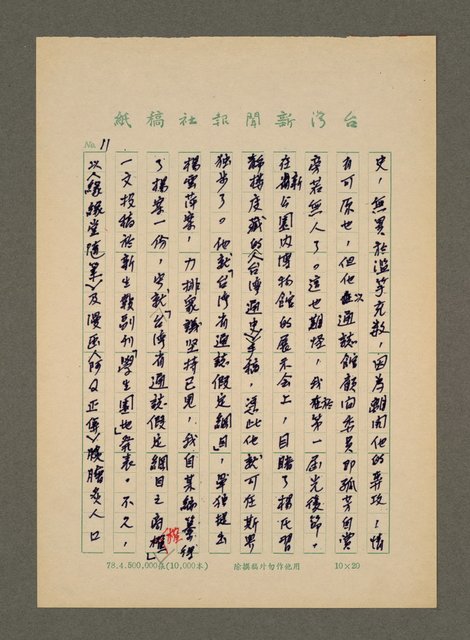 台灣新聞報社稿紙
No. 11
史，無異於濫竽充數，因為離開他的專攻；情
有可原也，但他並以通誌館顧問委員即孤芳自賞
旁若無人了。這也難怪，我在於第一屆光復節，
在新公園內博物館的展示會上，目睹了楊氏習
靜樓度藏的「台灣通史」手稿，憑此他就可在斯界
獨步了。他就「台灣省通誌假定綱目」，單獨提出
楊雲萍案，力排眾議堅持己見，我自某編纂得
了楊案一份，安就「台灣省通誌假定綱目之商榷」
一文投稿於新生報副刊「學生園地」發表。不久，
以「緣緣堂隨筆」及漫画「阿Q正傳」膾膾炙人口
榷
78.4.500,000張(10,000本)
除撰稿外勿作他用
10×20